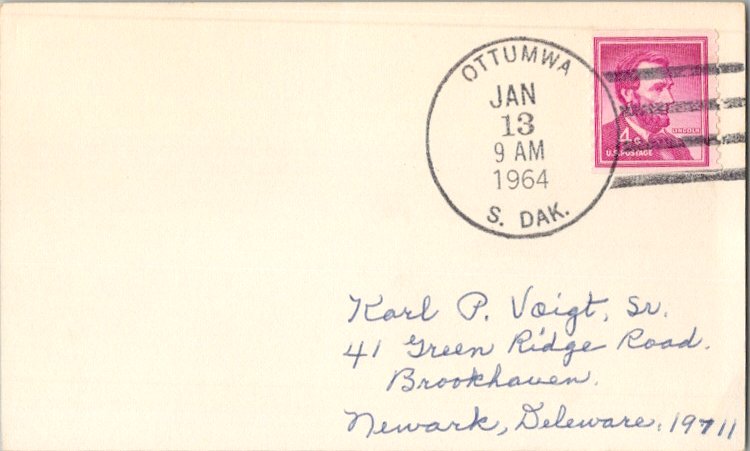 OTTUMWA
JAN
13
9 AM
1964
S. DAK.
LINCOLN
4¢
U.S. POSTAGE
Karl P. Voigt, Sr.
41 Green Ridge Road.
Brookhaven.
Newark, Deleware. 19711